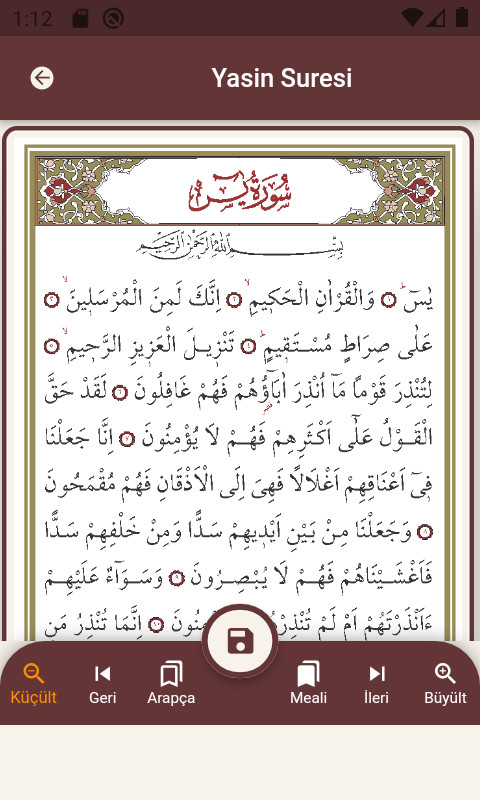 1:12
Yasin Suresi
سُورَةُ يٰسٓ
بِسْــــــمِ اللّٰهِ الرَّحْمٰنِ الرَّحٖيمِ
يٰسٓ ﴿١﴾ وَالْقُرْاٰنِ الْحَكٖيمِ ﴿٢﴾ اِنَّكَ لَمِنَ الْمُرْسَلٖينَ ﴿٣﴾
عَلٰى صِرَاطٍ مُسْتَقٖيمٍ ﴿٤﴾ تَنْزٖيلَ الْعَزٖيزِ الرَّحٖيمِ ﴿٥﴾
لِتُنْذِرَ قَوْمًا مَٓا اُنْذِرَ اٰبَٓاؤُ۬هُمْ فَهُمْ غَافِلُونَ ﴿٦﴾ لَقَدْ حَقَّ
الْقَوْلُ عَلٰٓى اَكْثَرِهِمْ فَهُمْ لَا يُؤْمِنُونَ ﴿٧﴾ اِنَّا جَعَلْنَا
فٖٓى اَعْنَاقِهِمْ اَغْلَالًا فَهِىَ اِلَى الْاَذْقَانِ فَهُمْ مُقْمَحُونَ
﴿٨﴾ وَجَعَلْنَا مِنْ بَيْنِ اَيْدٖيهِمْ سَدًّا وَمِنْ خَلْفِهِمْ سَدًّا
فَاَغْشَيْنَاهُمْ فَهُمْ لَا يُبْصِرُونَ ﴿٩﴾ وَسَوَٓاءٌ عَلَيْهِمْ
ءَاَنْذَرْتَهُمْ اَمْ لَمْ ﴿١٠﴾ اِنَّمَا تُنْذِرُ مَنِ
Küçült
Geri
Arapça
Meali
İleri
Büyült